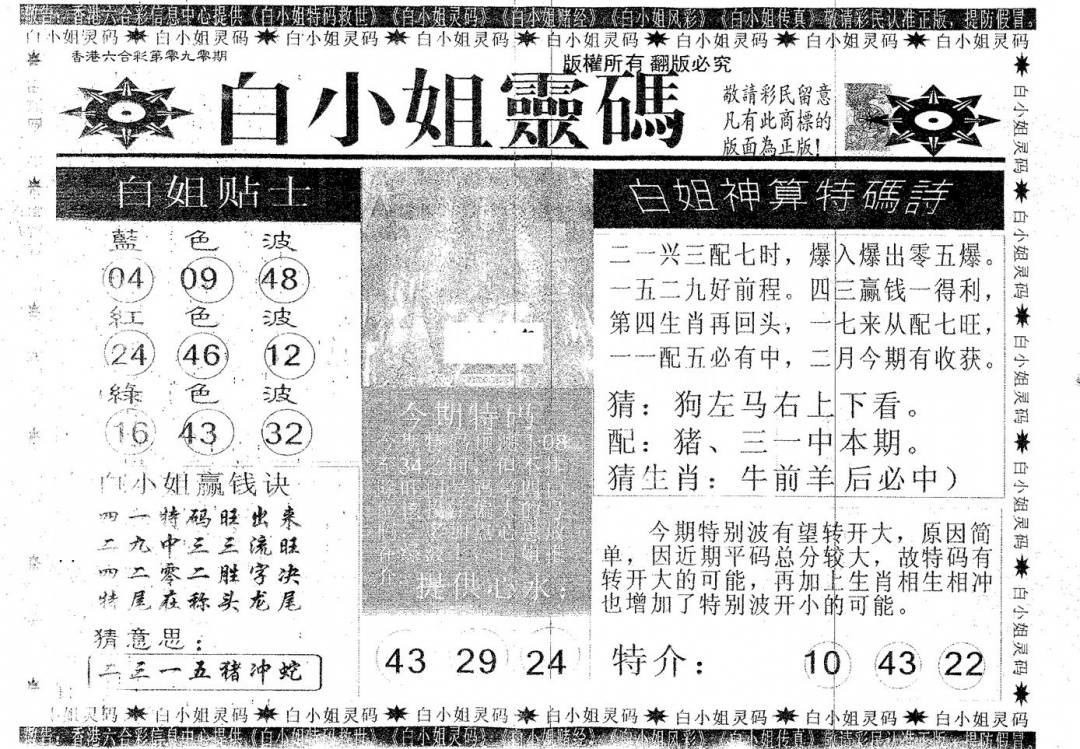 敬告：香港六合彩信息中心提供《白小姐特码救世》《白小姐灵码》《白小姐赌经》《白小姐风彩》《白小姐传真》敬请彩民认准正版，提防假冒。
白小姐灵码 白小姐灵码 白小姐灵码 白小姐灵码 白小姐灵码 白小姐灵码 白小姐灵码 白小姐灵码
香港六合彩第零九零期
版權所有 翻版必究
白小姐靈碼
敬請彩民留意
凡有此商標的
版面為正版!
白姐贴士
藍色波
04 09 48
紅色波
24 46 12
綠色波
16 43 32
白小姐赢钱诀
四一特码旺出来
二九中三三流旺
四二零二胜字决
特尾在称头龙尾
猜意思：
二三一五猪冲蛇
今期特码
提供心水：
43 29 24
白姐神算特碼詩
二一兴三配七时，爆入爆出零五爆。
一五二九好前程。四三赢钱一得利，
第四生肖再回头，一七来从配七旺，
一一配五必有中，二月今期有收获。
猜：狗左马右上下看。
配：猪、三一中本期。
猜生肖：牛前羊后必中）
今期特别波有望转开大，原因简
单，因近期平码总分较大，故特码有
转开大的可能，再加上生肖相生相冲
也增加了特别波开小的可能。
特介： 10 43 22
白小姐灵码 白小姐灵码 白小姐灵码 白小姐灵码 白小姐灵码
小姐灵码 白小姐灵码 白小姐灵码 白小姐灵码 白小姐灵码 白小姐灵码 白小姐灵码 白小姐灵码
敬告：香港六合彩信息中心提供《白小姐特码救世》《白小姐灵码》《白小姐赌经》《白小姐风彩》《白小姐传真》敬请彩民认准正版，提防假冒